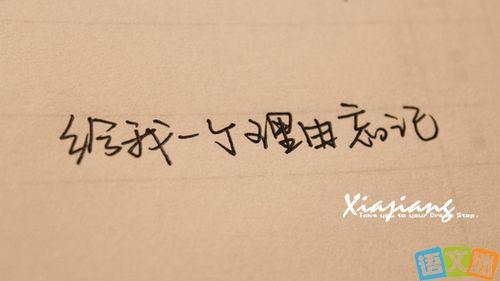 给我一个理由忘记
Xiaxiang
Take you to your Dream Step.
语文迷